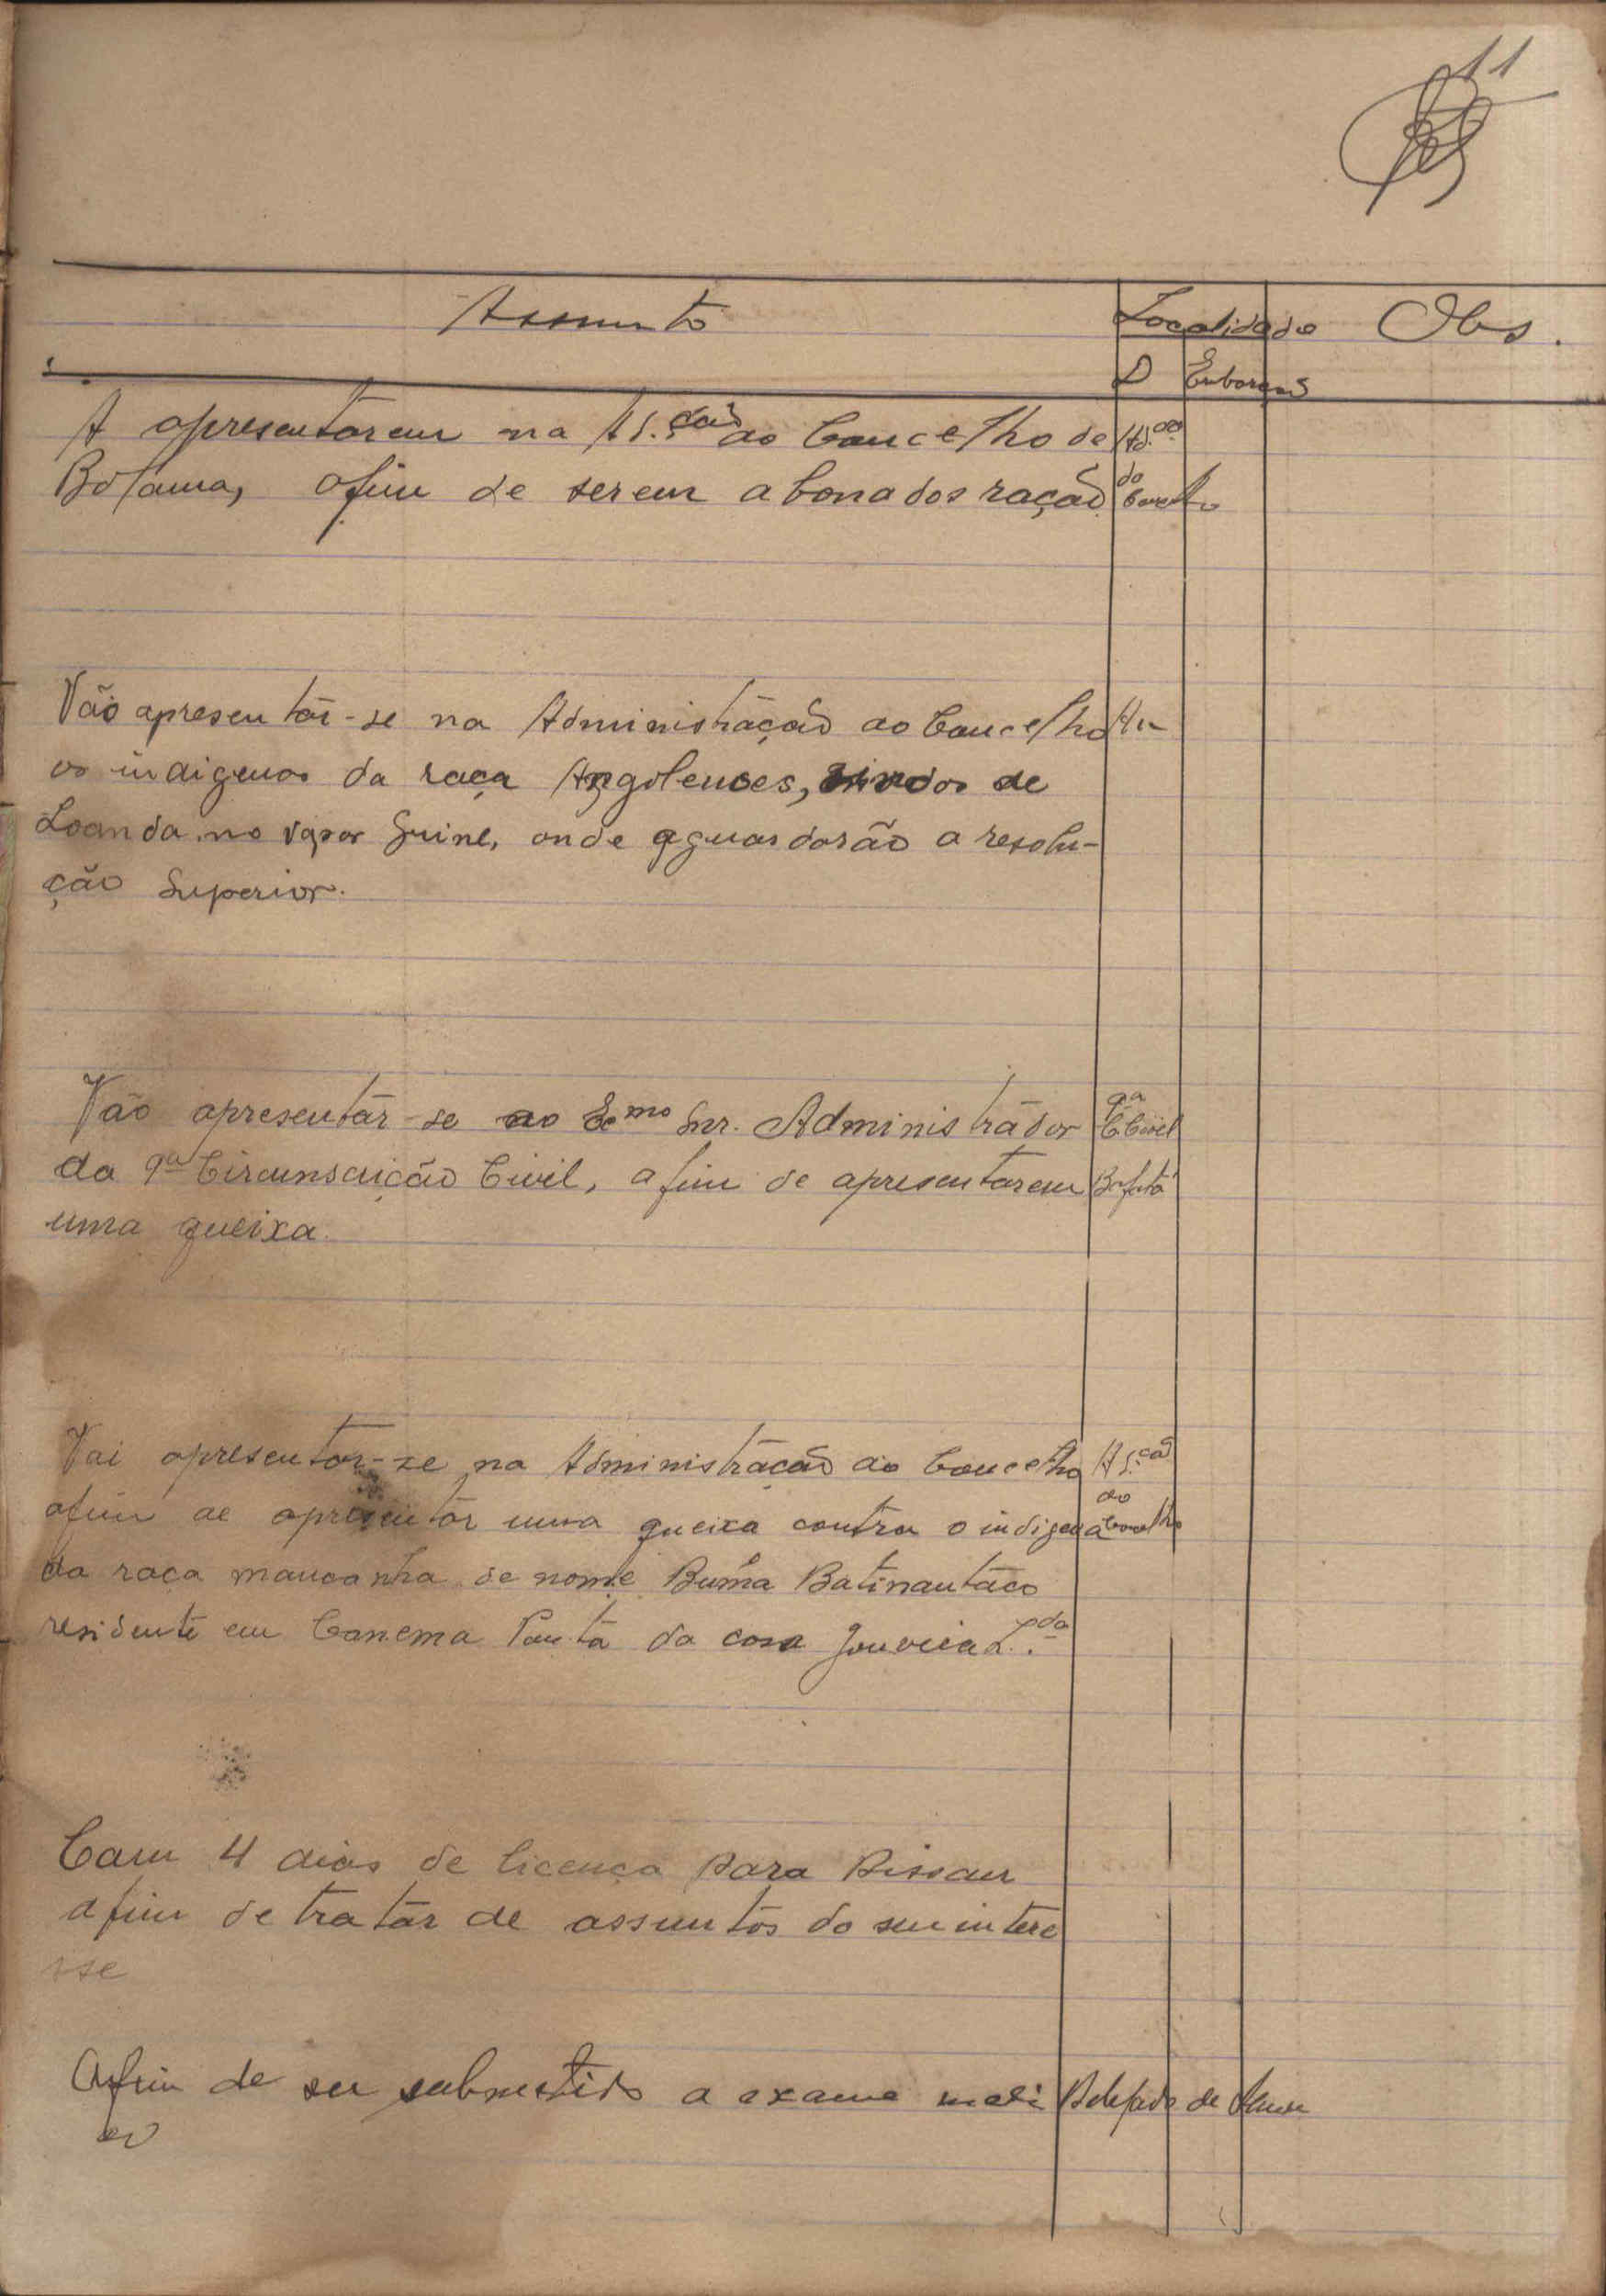 11
Assunto Localidade Obs.
D Embarque
A apresentarem na Ad.ção do Concelho de Ad.ção
Bolama, afim de serem abonados ração do Concelho
Vão apresentár-se na Administração do Concelho
os indigenas da raça Angolenses, vindos de
Loanda no vapor Guiné, onde aguardarão a resolu-
ção Superior.
Vão apresentár-se ao Exmo Snr. Administrador 9ª C. Civil
da 9ª Circunscrição Civil, afim de apresentarem Bafatá
uma queixa.
Vai apresentar-se na Administração do Concelho Ad.ção
afim de apresentár uma queixa contra o indigena do Concelho
da raça mancanha de nome Buma Batinantáco
residente em Canema Ponta da casa Gouveia L.da
Com 4 dias de licença para Bissau
afim de tratár de assuntos do seu intere
sse
Afim de ser submetido a exame medi
co